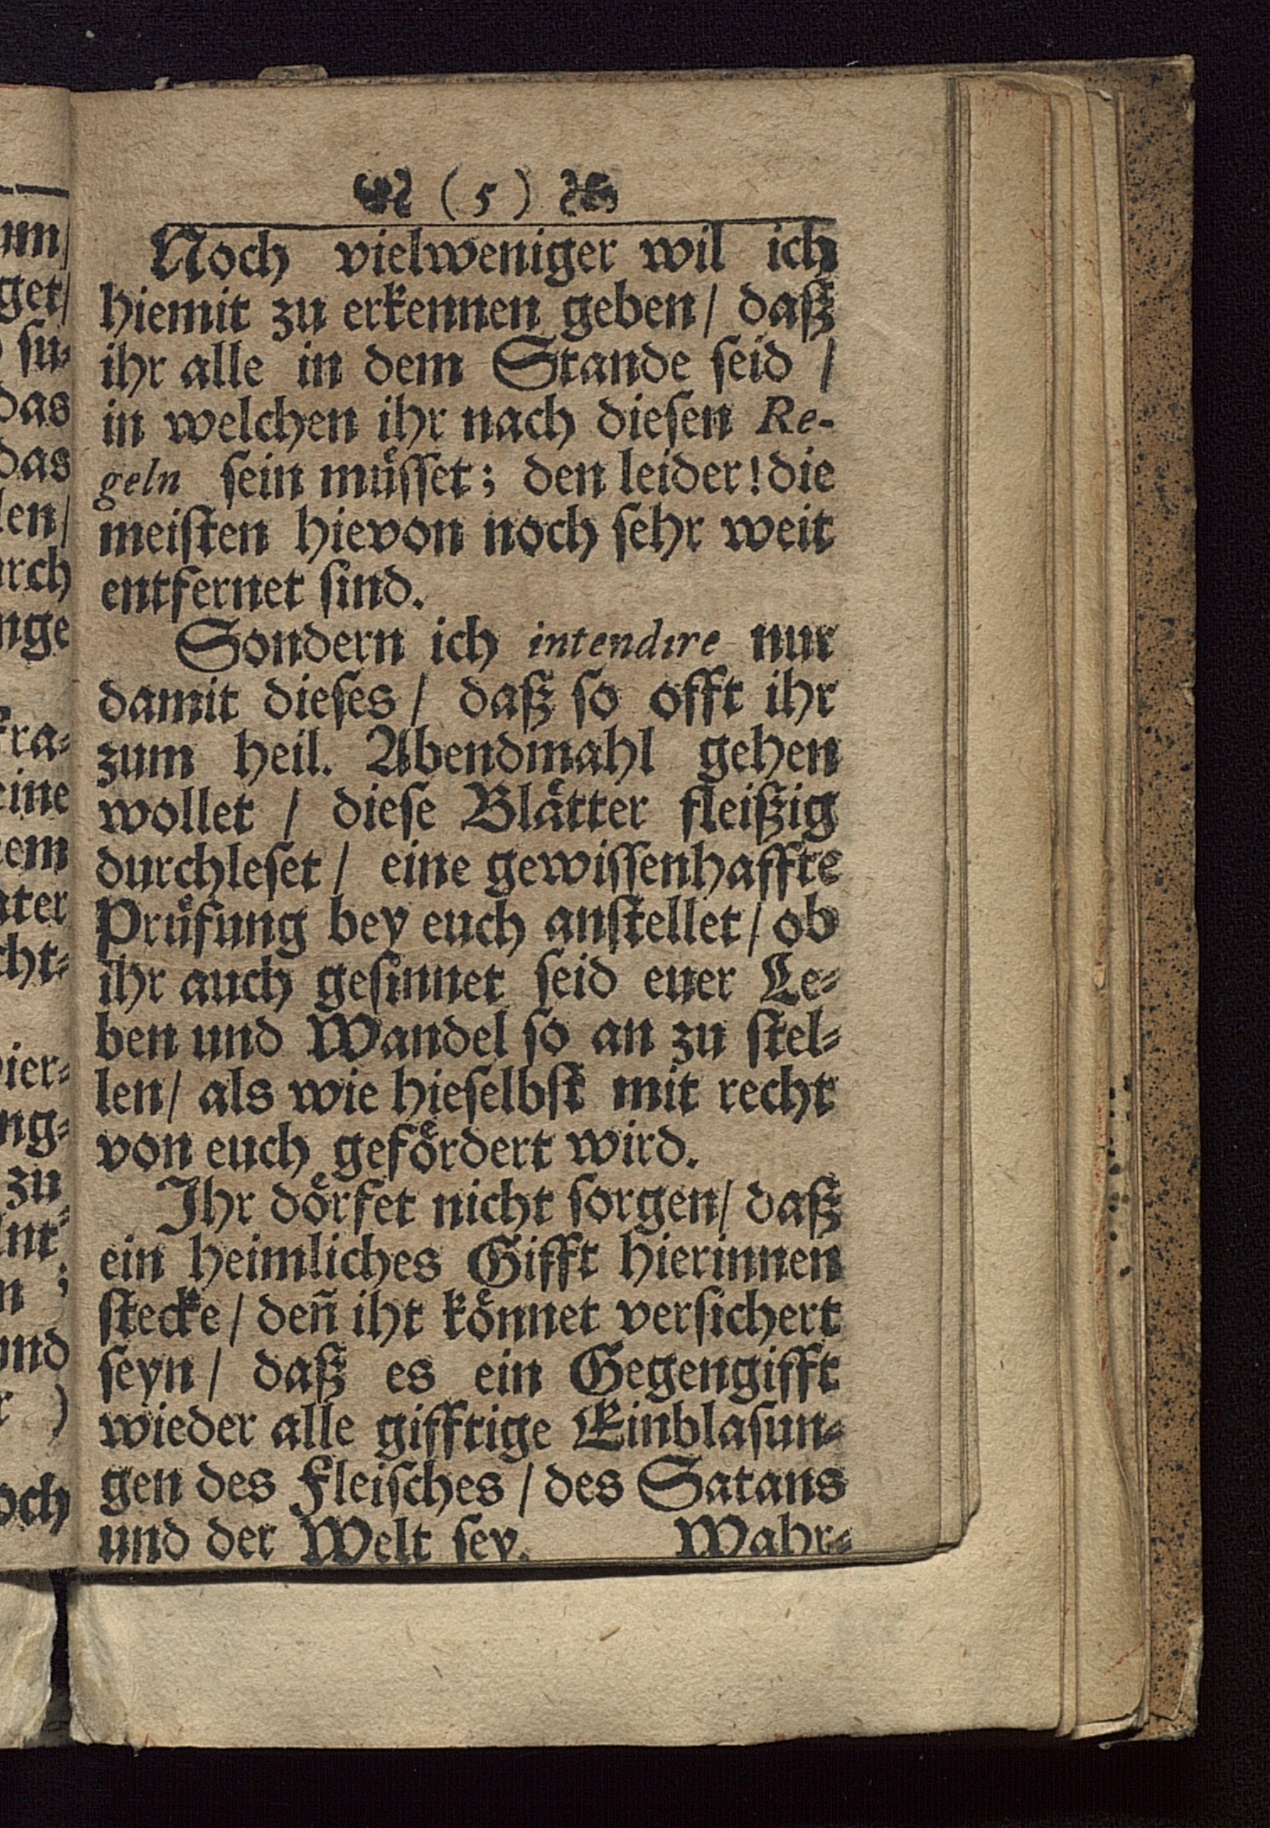 ( 5 )
Noch vielweniger wil ich
hiemit zu erkennen geben / daß
ihr alle in dem Stande seid /
in welchen ihr nach diesen Re-
geln sein müsset; den leider! die
meisten hievon noch sehr weit
entfernet sind.
Sondern ich intendire nur
damit dieses / daß so offt ihr
zum heil. Abendmahl gehen
wollet / diese Blätter fleißig
durchleset / eine gewissenhaffte
Prüfung bey euch anstellet / ob
ihr auch gesinnet seid euer Le-
ben und Wandel so an zu stel-
len / als wie hieselbst mit recht
von euch gefördert wird.
Ihr dörfet nicht sorgen / daß
ein heimliches Gifft hierinnen
stecke / deñ iht könnet versichert
seyn / daß es ein Gegengifft
wieder alle gifftige Einblasun-
gen des Fleisches / des Satans
und der Welt sey. Wahr-